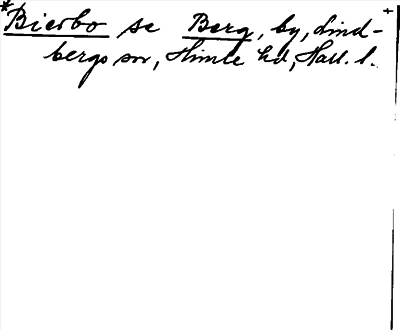 *Bierbo se Berg, by, Lind-
bergs sn, Himle hd, Hall. l.